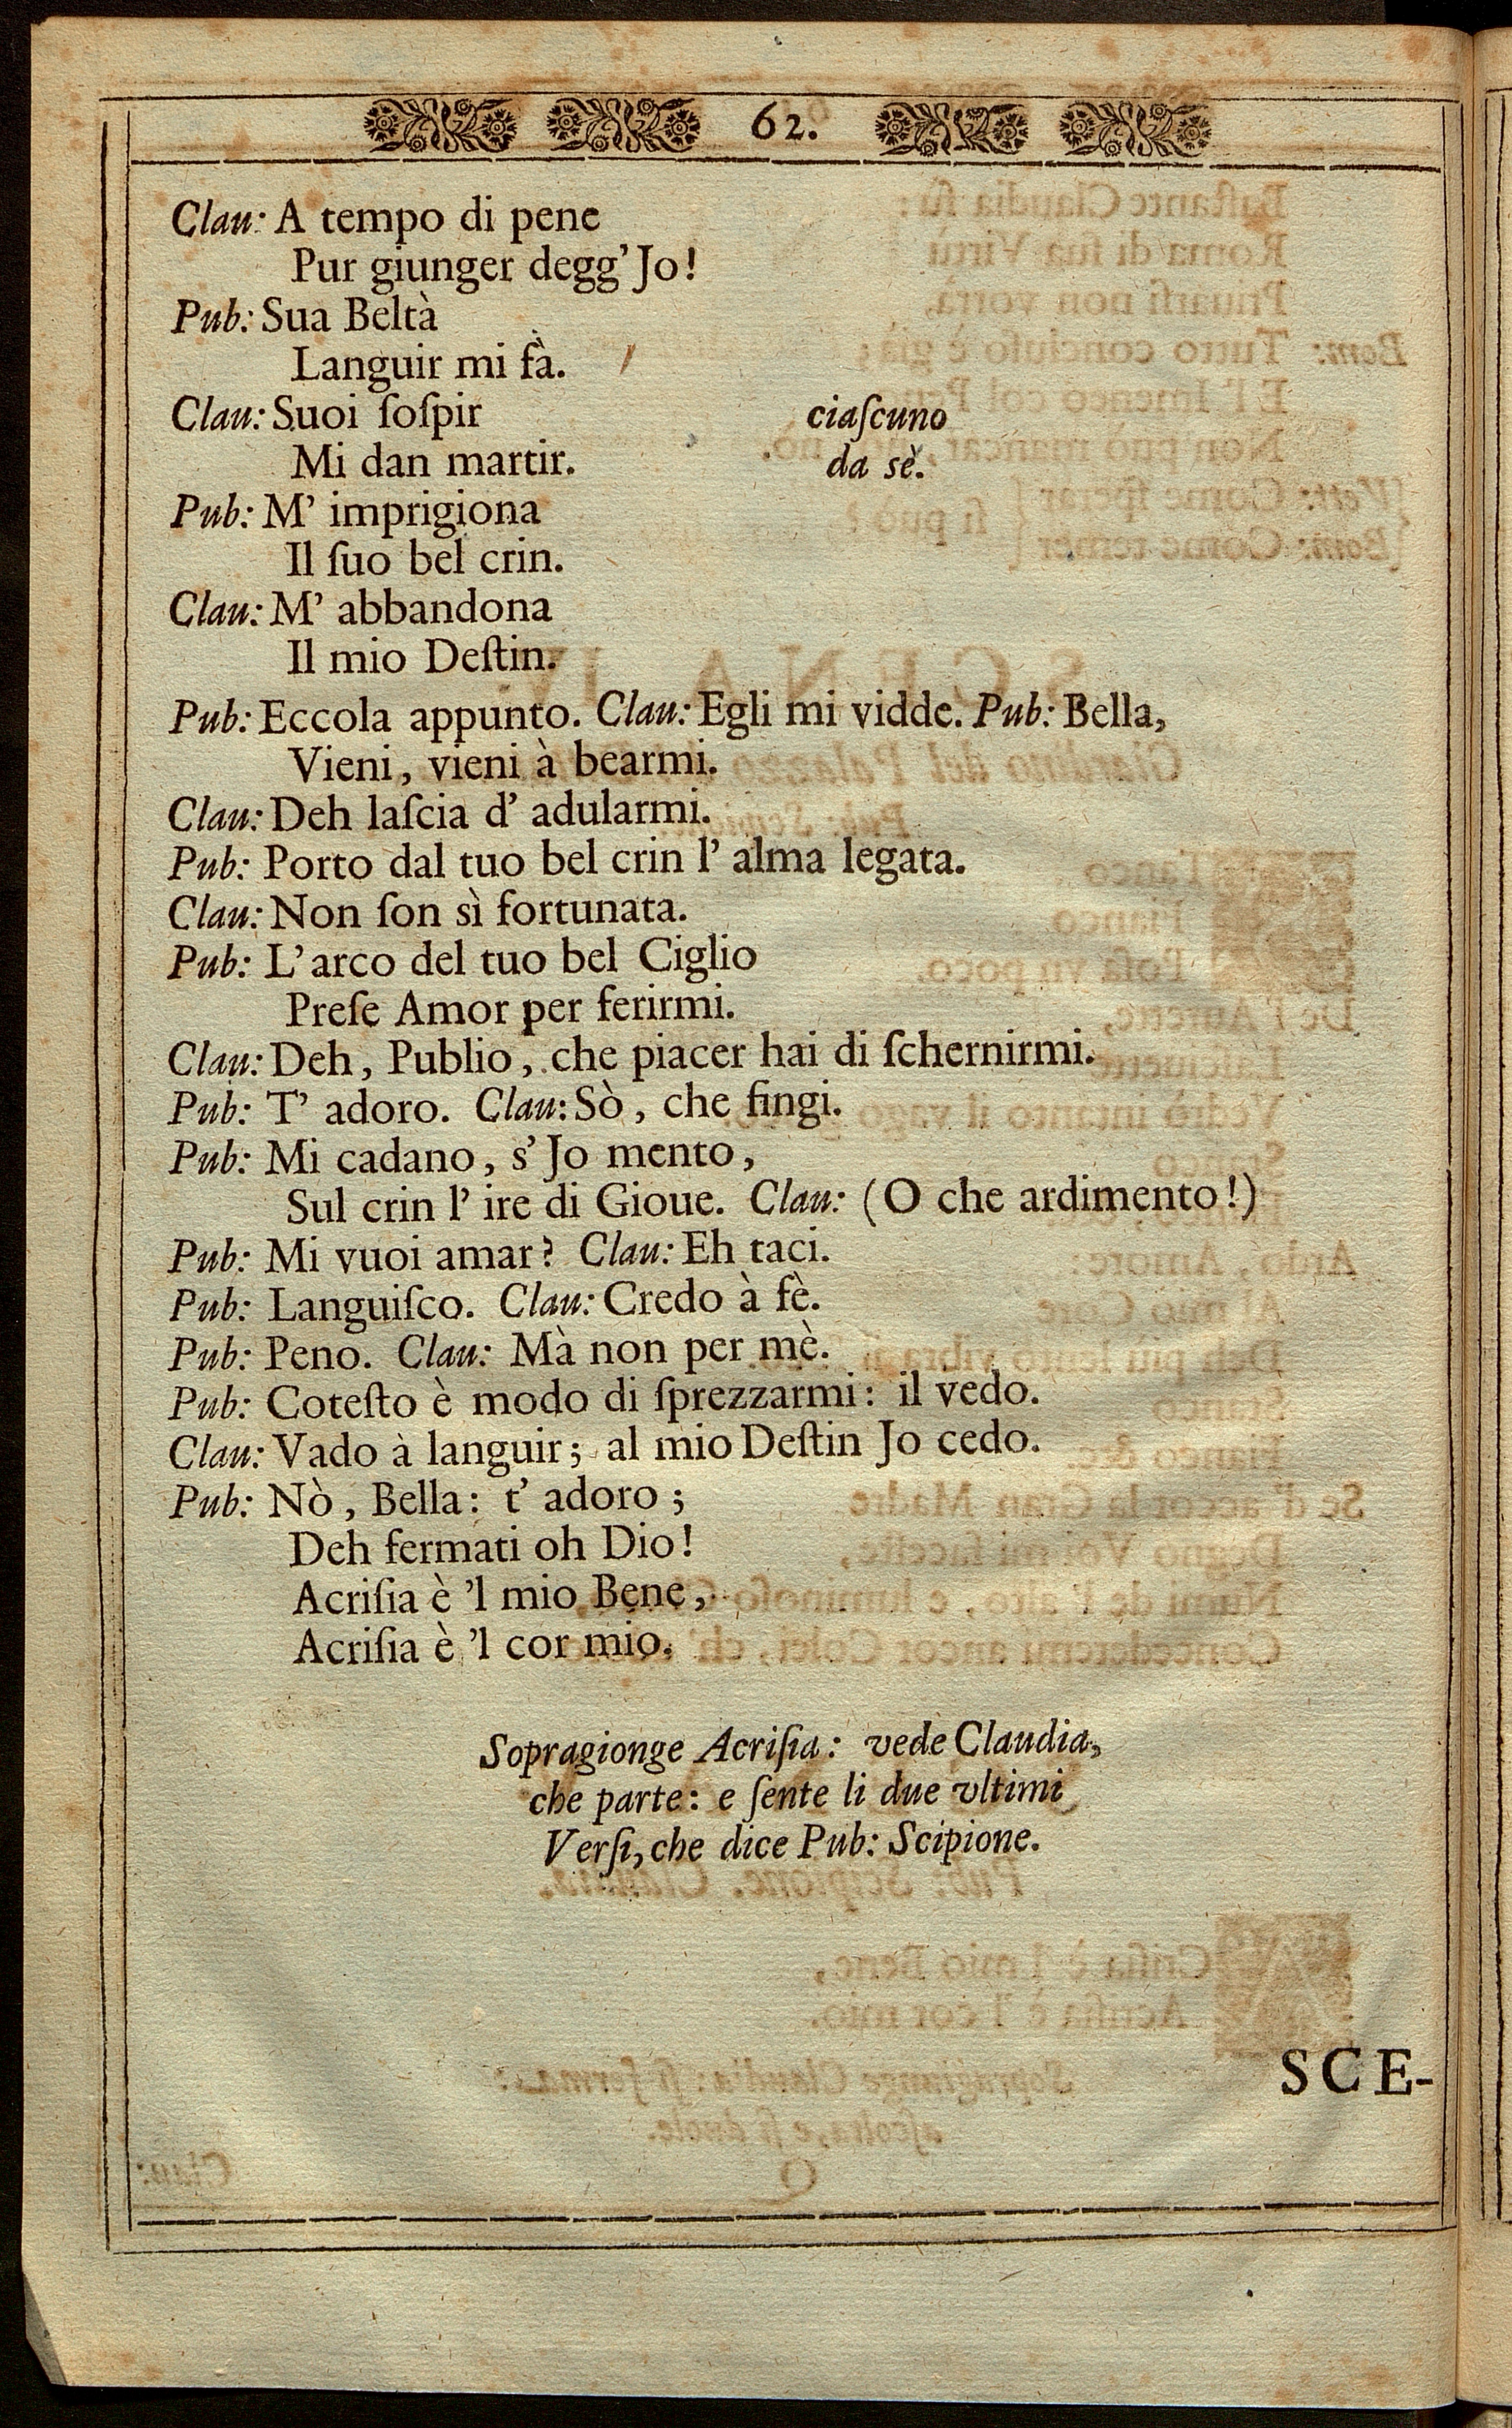 62.
Clau: A tempo di pene
Pur giunger degg' Jo!
Pub: Sua Beltà
Languir mi fà.
Clau: Suoi ſoſpir
ciaſcuno
Mi dan martir.
da sè.
Pub: M' imprigiona
Il ſuo bel crin.
Clau: M' abbandona
Il mio Deſtin.
Pub: Eccola appunto. Clau: Egli mi vidde. Pub: Bella,
Vieni, vieni à bearmi.
Clau: Deh laſcia d' adularmi.
Pub: Porto dal tuo bel crin l' alma legata.
Clau: Non ſon sì fortunata.
Pub: L' arco del tuo bel Ciglio
Preſe Amor per ferirmi.
Clau: Deh, Publio, che piacer hai di ſchernirmi.
Pub: T' adoro. Clau: Sò, che fingi.
Pub: Mi cadano, s' Jo mento,
Sul crin l' ire di Gioue. Clau: (O che ardimento!)
Pub: Mi vuoi amar? Clau: Eh taci.
Pub: Languiſco. Clau: Credo à fè.
Pub: Peno. Clau: Mà non per mè.
Pub: Coteſto è modo di ſprezzarmi: il vedo.
Clau: Vado à languir; al mio Deſtin Jo cedo.
Pub: Nò, Bella: t' adoro;
Deh fermati oh Dio!
Acriſia è 'l mio Bene,
Acriſia è 'l cor mio.
Sopragionge Acriſia: vede Claudia,
che parte: e ſente li due vltimi
Verſi, che dice Pub: Scipione.
SCE-